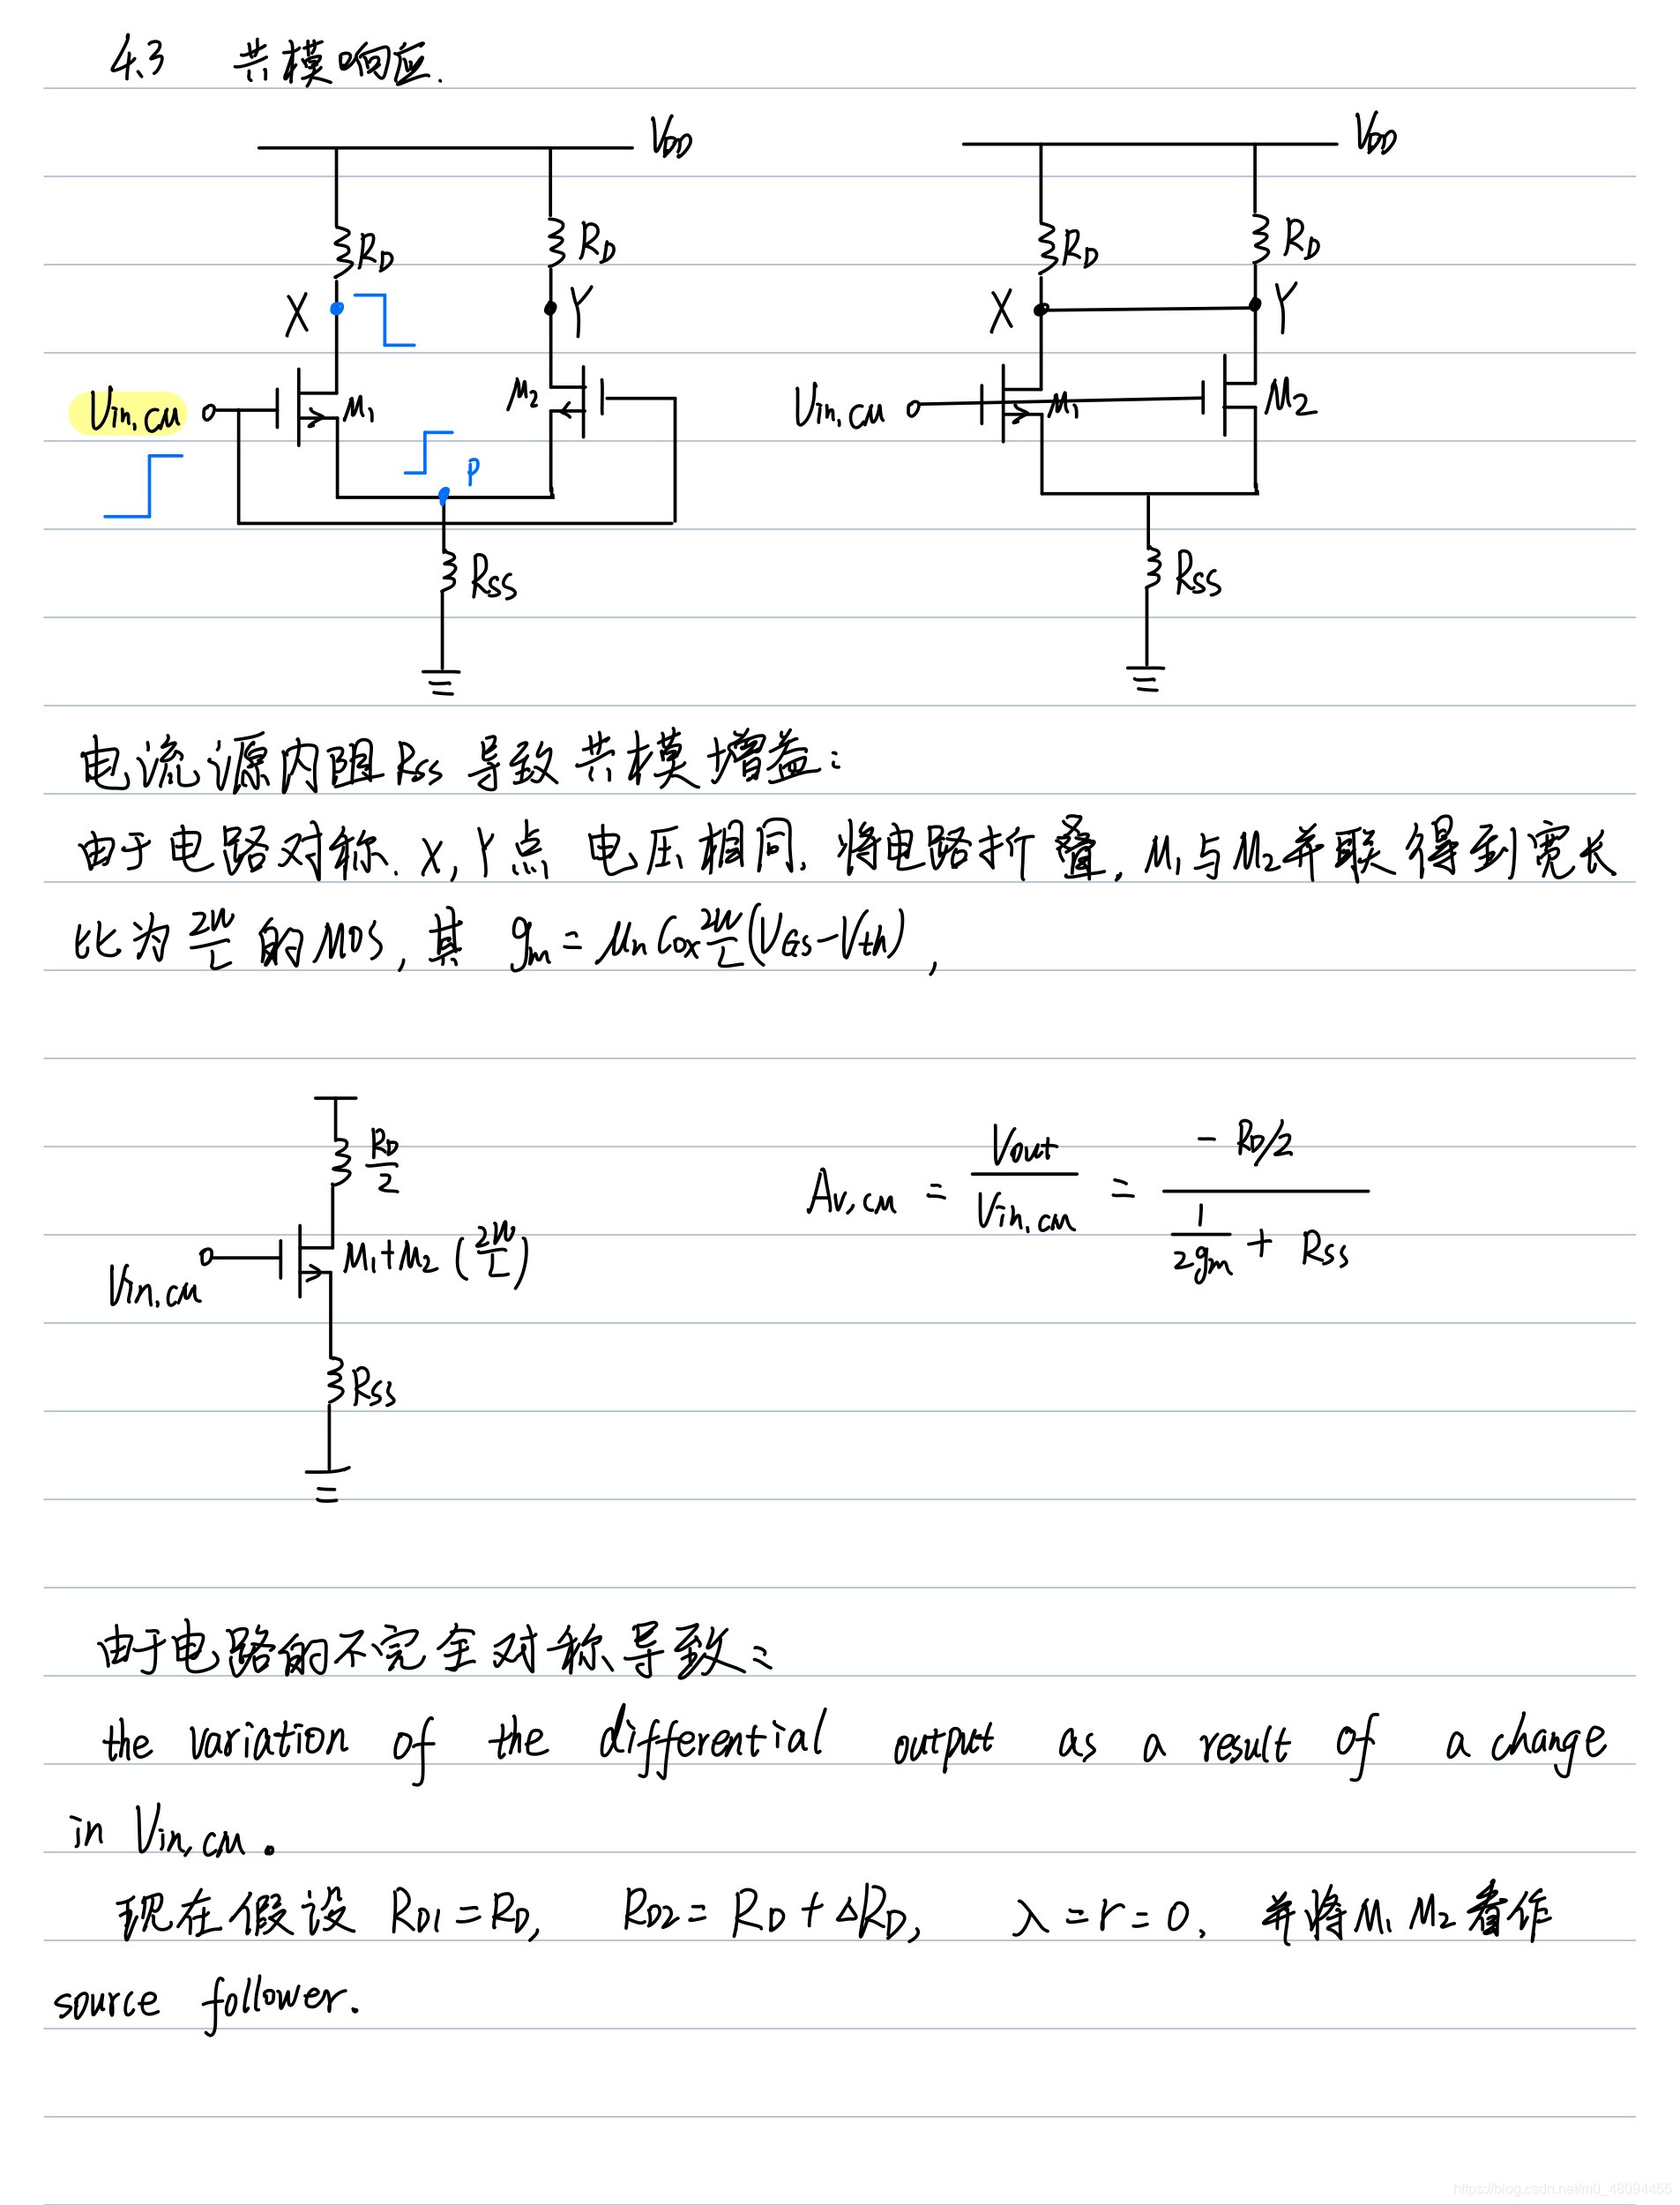 4.3 共模响应.
VDD VDD
RD RD RD RD
X Y X Y
Vin,CM M1 M2 Vin,CM M1 M2
P
RSS RSS
电流源内阻RSS导致共模增益:
由于电路对称. X, Y点 电压相同, 将电路折叠, M1与M2并联得到宽长
比为 2W/L 的MOS, 其 gm = μnCox 2W/L (VGS-Vth),
RD/2
Av,CM = Vout/Vin,CM = -RD/2 / (1/2gm + RSS)
Vin,CM M1+M2 (2W/L)
RSS
由于电路的不完全对称导致:
the variation of the differential output as a result of a change
in Vin,CM.
现在假设 RD1=RD, RD2=RD+ΔRD, λ=r=0. 并将M1 M2看作
source follower.
https://blog.csdn.net/m0_48094455